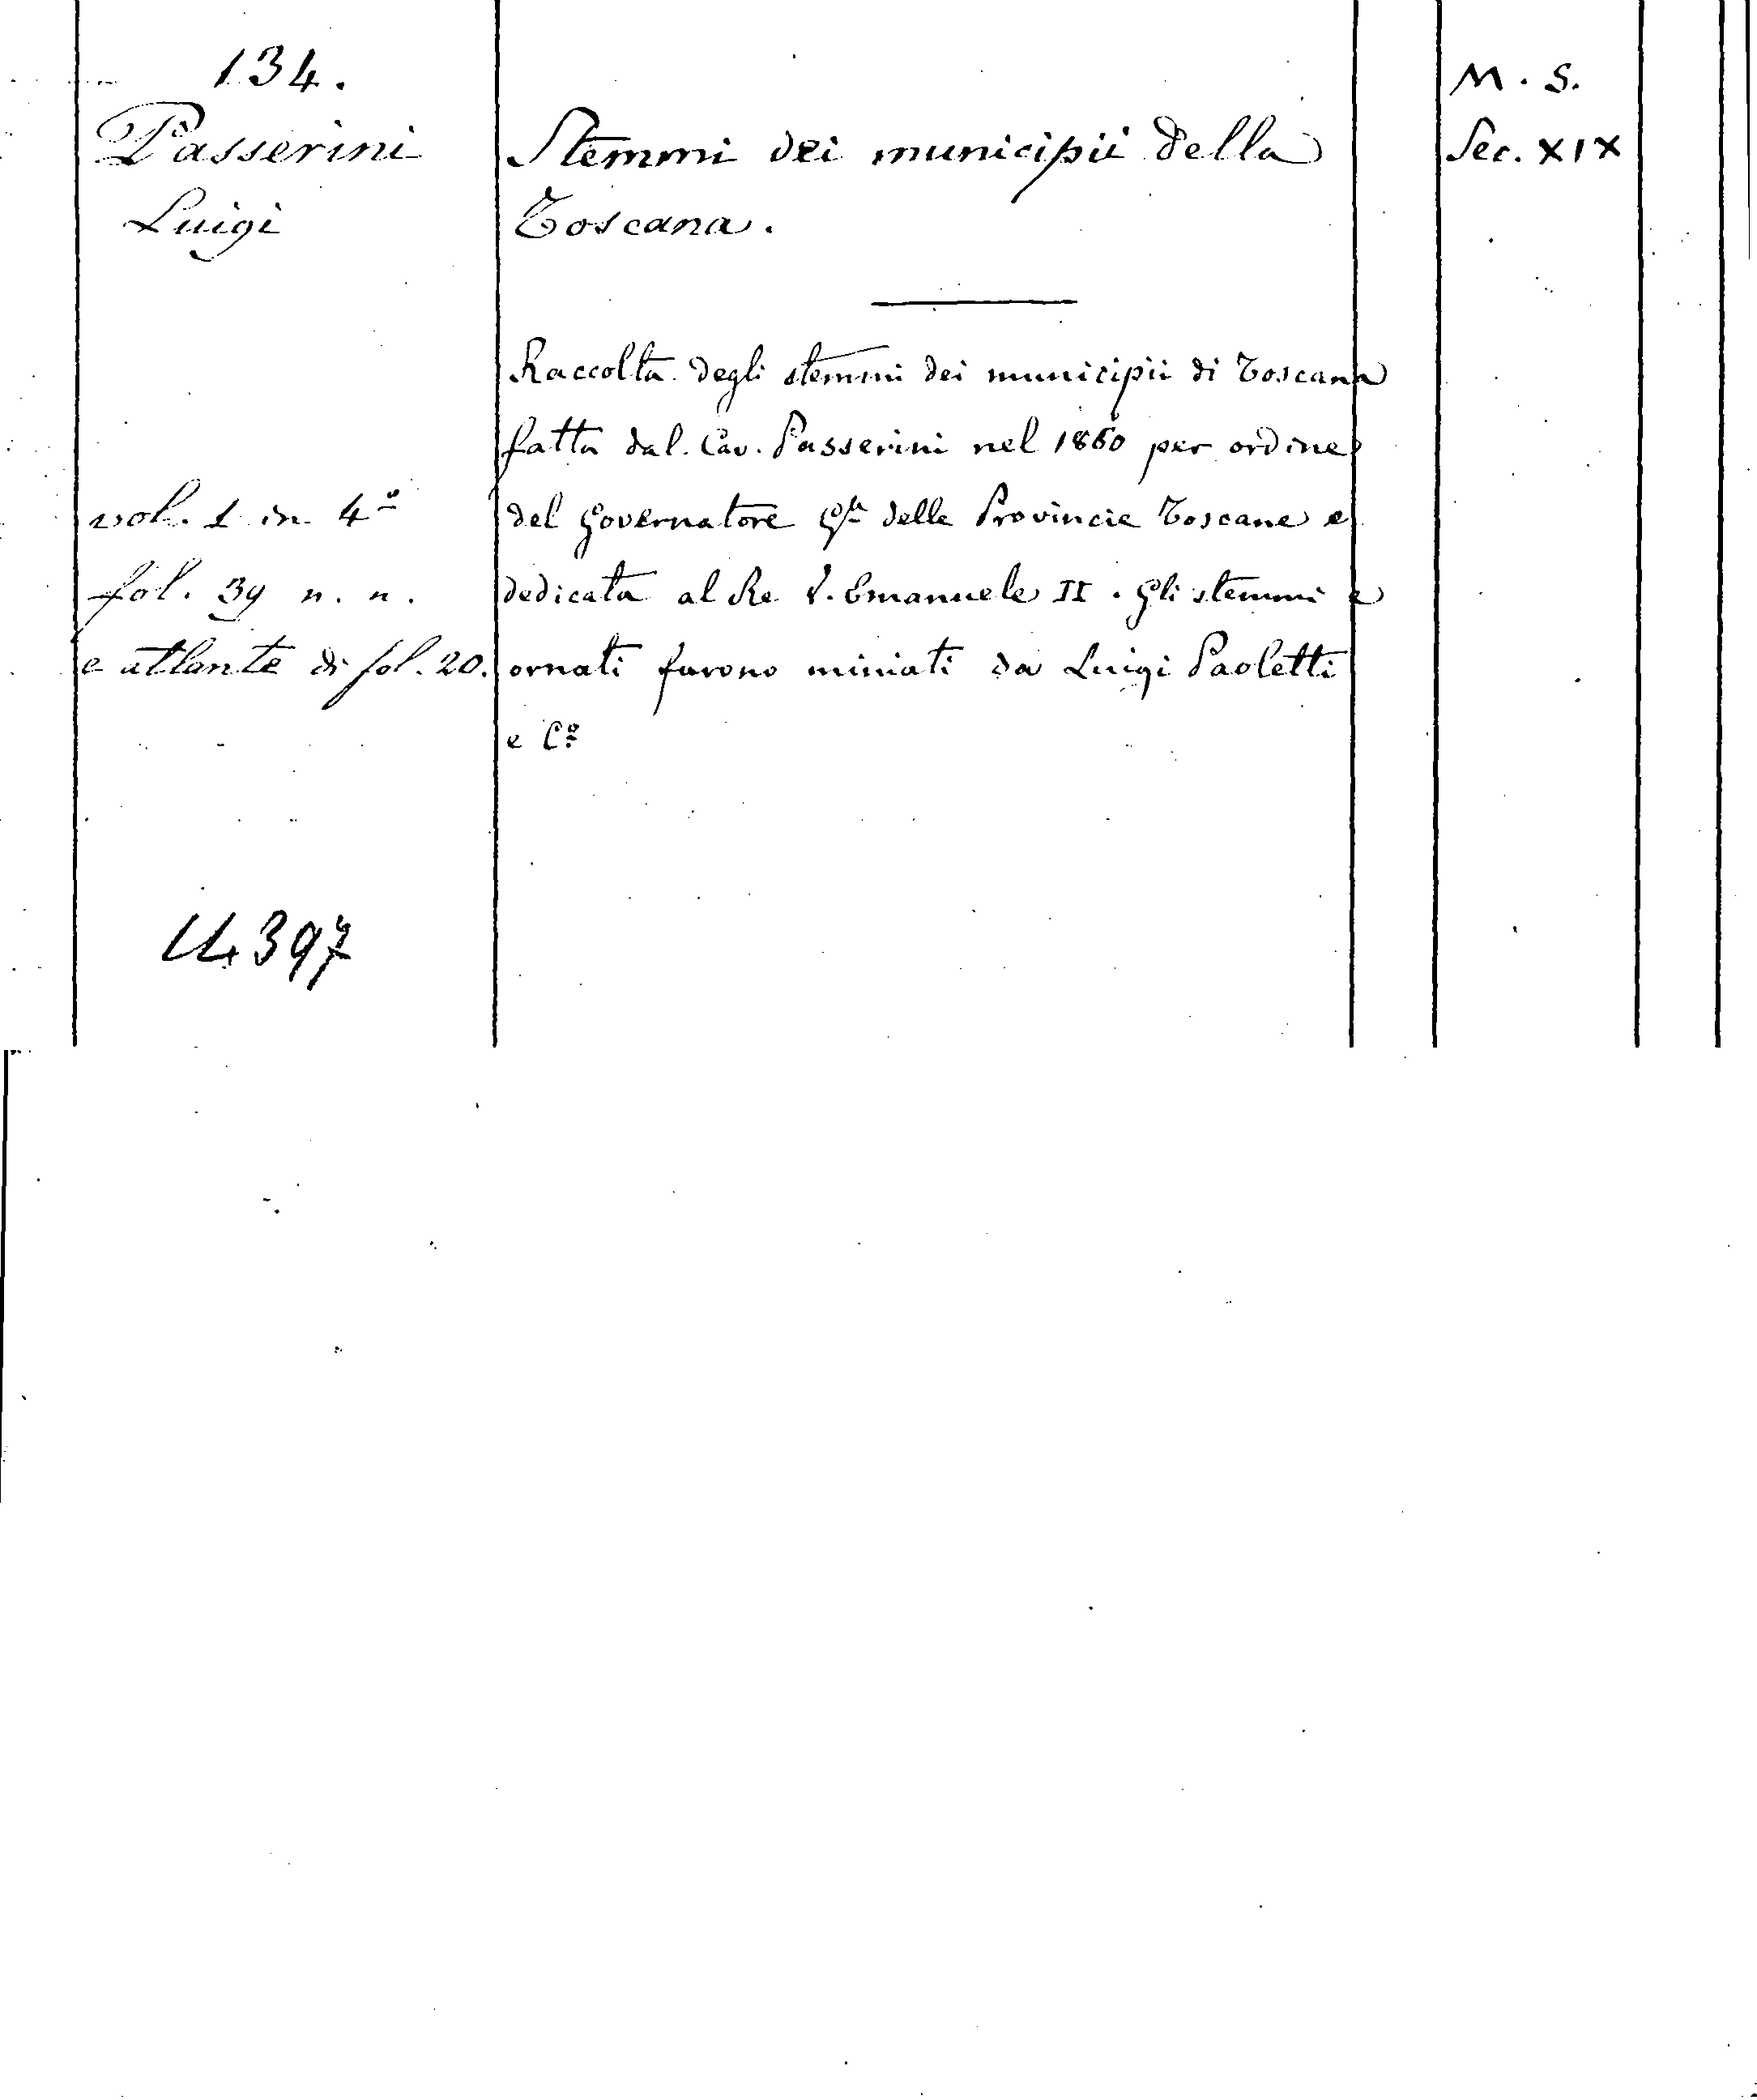 134.
Passerini
Luigi
vol. 1 in 4º
fol. 39 n. n.
e atlante di fol. 20.
14397
Stemmi dei municipii della
Toscana.
Raccolta degli stemmi dei municipii di Toscana
fatta dal Cav. Passerini nel 1860 per ordine
del Governatore Gle delle Provincie Toscane e
dedicata al Re V. Emanuele II. Gli stemmi e
ornati furono miniati da Luigi Paoletti
e Cº
M. S.
Sec. XIX